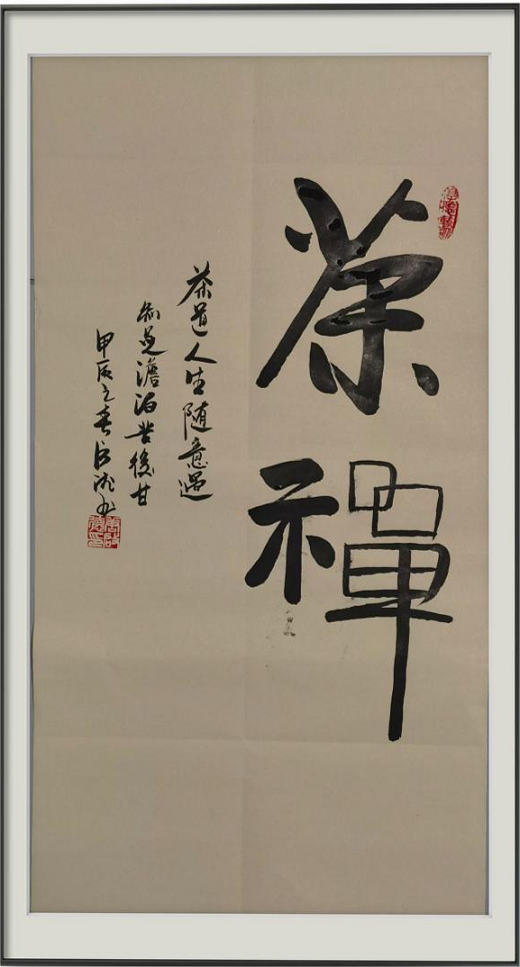 茶禅
茶道人生随意遇
知足澹泊苦後甘
甲辰之春